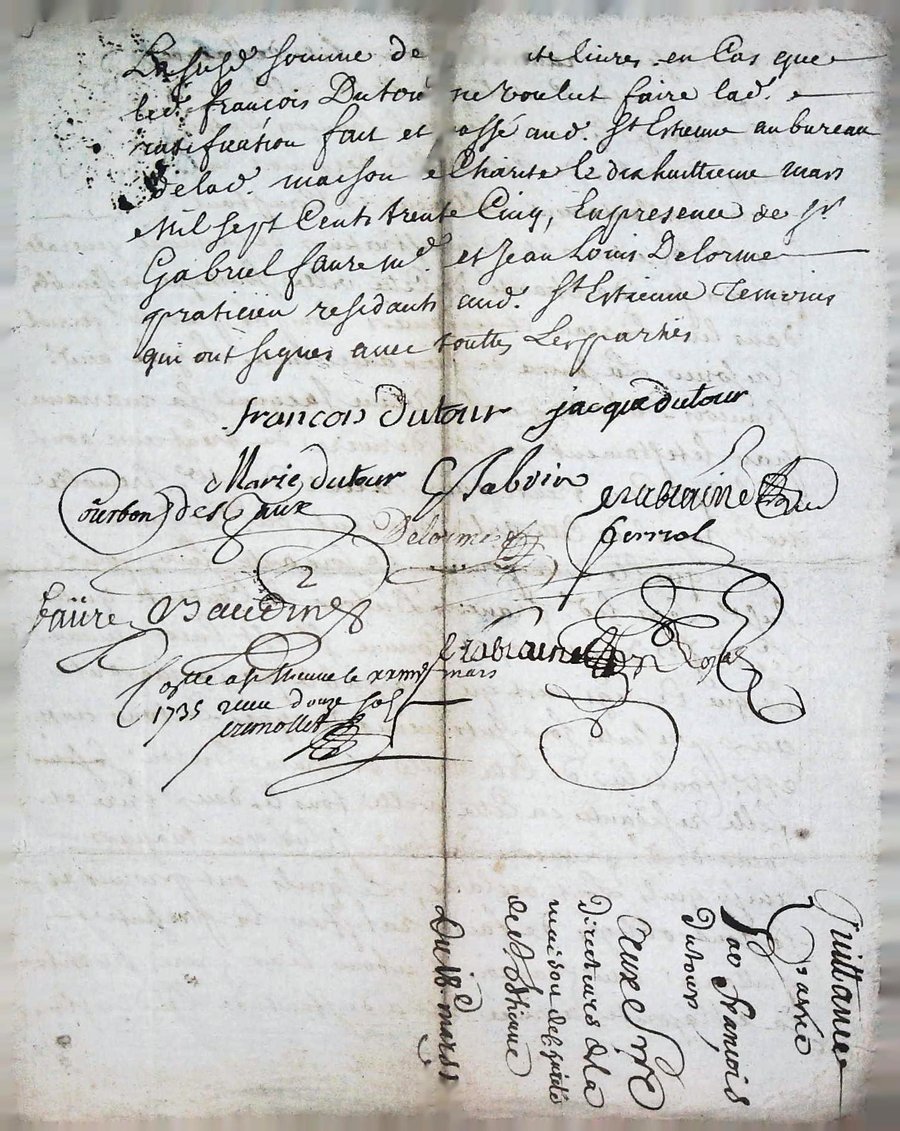 somme de livres en Cas que
led. françois Dutour ne voulut faire lad.
ratiffication fait et passé aud. St Estienne au bureau
de lad. maison de Charité le dixhuittieme mars
Mil sept Cents trente Cinq, En presence de sr
Gabriel faure md et Jean Louis Delorme
praticien residants aud. St Estienne Temoins
qui ont signes avec touttes Les parties
francois dutour jacque dutour
Marie dutour
Courbon des Gaux
Delorme
faüre
Coñlle a st Etienne le mars
1735 receu douze sols
Quittance
passée
par François
dutour
aux Srs
directeurs de la
maison de charité
de St Estienne
Du 18e mars